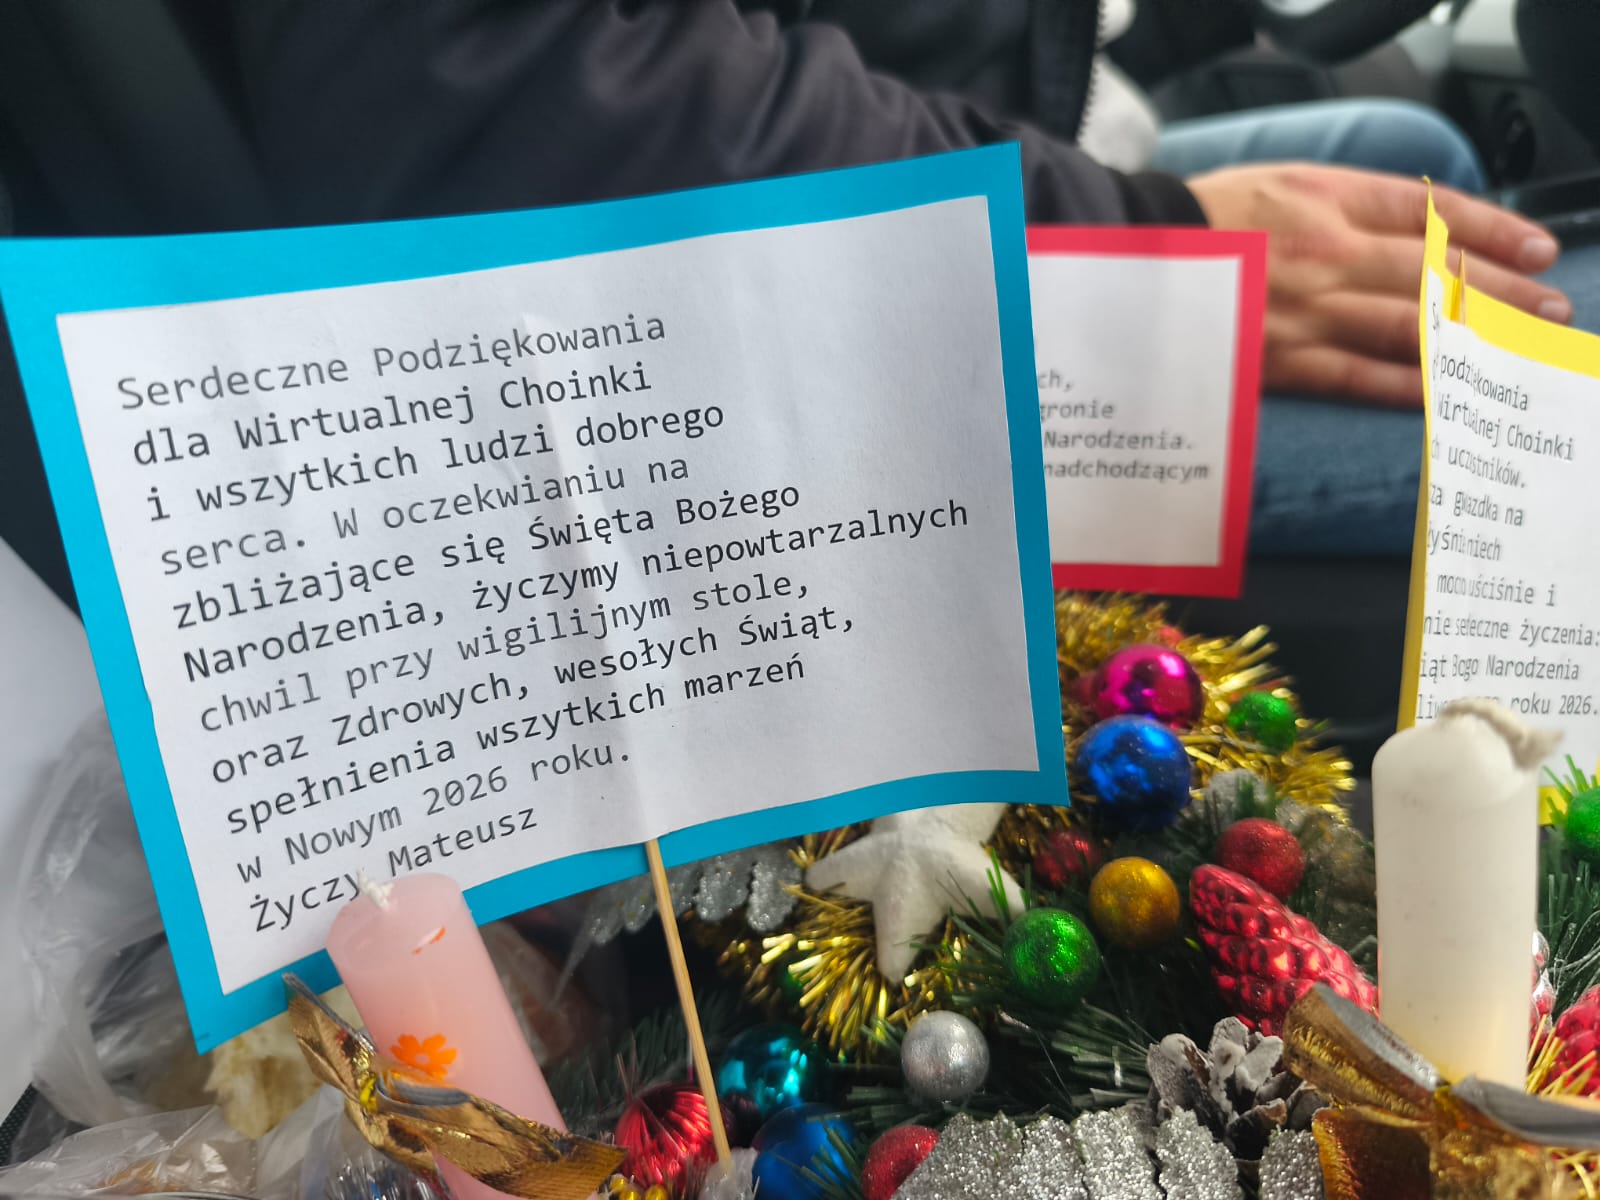 Serdeczne Podziękowania
dla Wirtualnej Choinki
i wszytkich ludzi dobrego
serca. W oczekwianiu na
zbliżające się Święta Bożego
Narodzenia, życzymy niepowtarzalnych
chwil przy wigilijnym stole,
oraz Zdrowych, wesołych Świąt,
spełnienia wszytkich marzeń
w Nowym 2026 roku.
Życzy Mateusz
ch,
gronie
Narodzenia.
nadchodzącym
podziękowania
Wirtualnej Choinki
ch uczestników.
za gwiazdka na
mocno uściśnie i
nie serdeczne życzenia:
iąt Bożego Narodzenia
roku 2026.